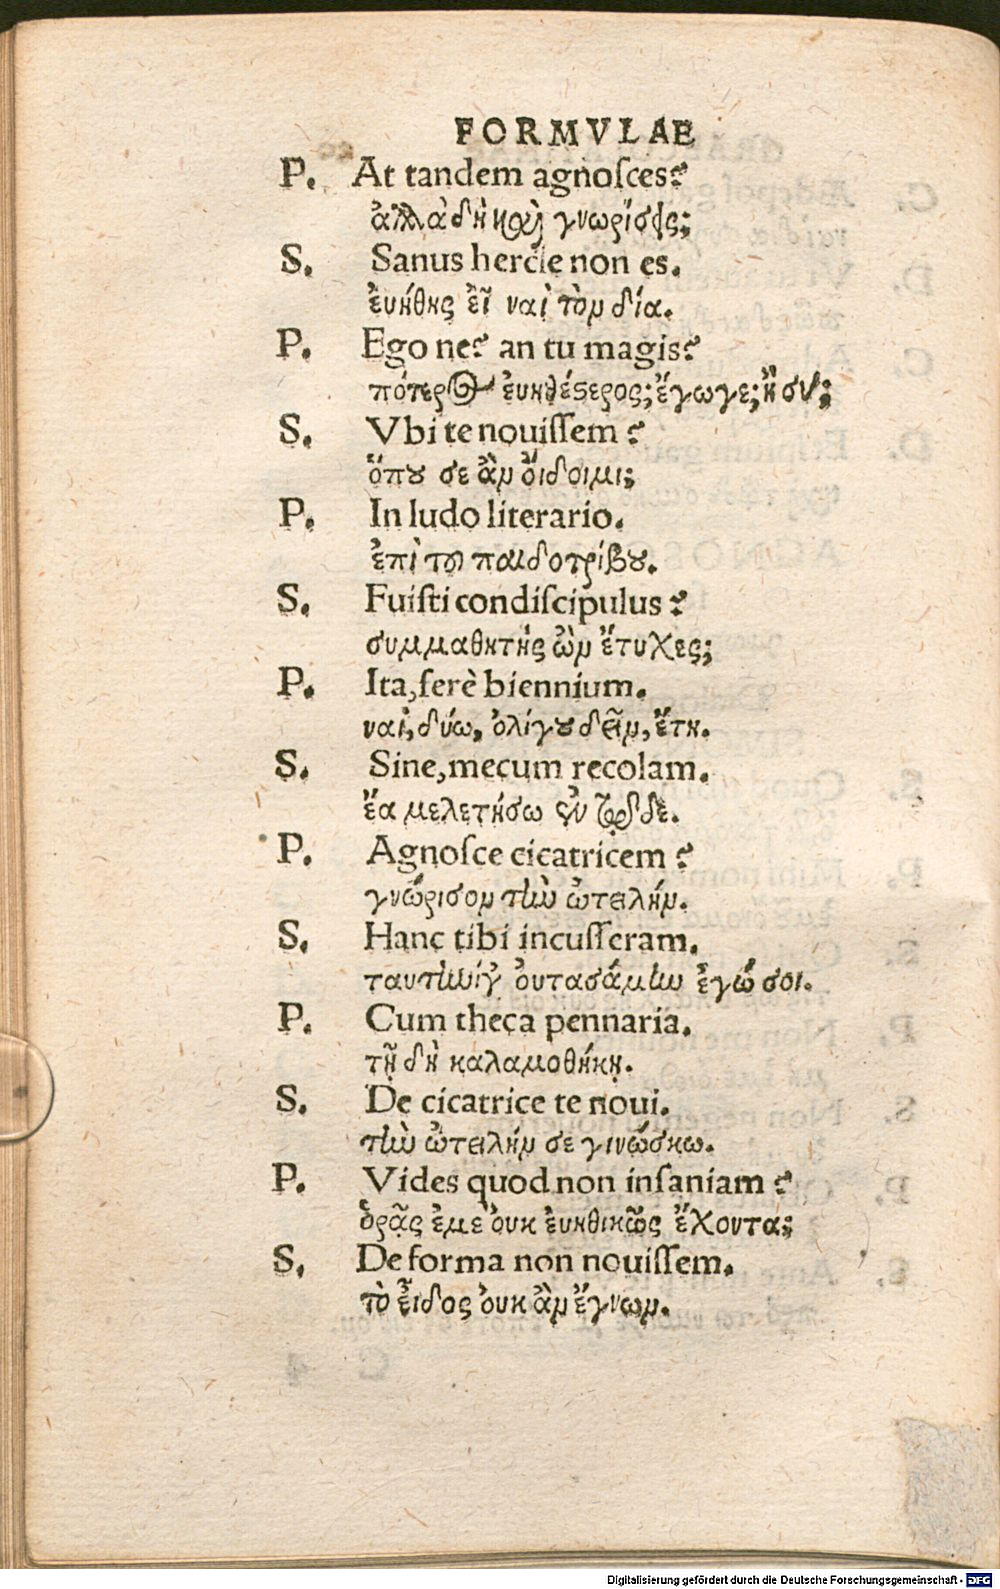 FORMVLAE
P. At tandem agnoſces?
ἀλλὰ δὴ καὶ γνωρίσῃς;
S. Sanus hercle non es.
ἐυήθης εἶ ναὶ τὸν δία.
P. Ego ne? an tu magis?
πότερος ἐυηθέστερος; ἔγωγε; ἢ σύ;
S. Vbi te nouiſſem?
ὅπου σε ἂν ὄιδοιμι;
P. In ludo literario.
ἐπὶ τοῦ παιδοτρίβου.
S. Fuiſti condiſcipulus?
συμμαθητὴς ὢν ἔτυχες;
P. Ita, ferè biennium.
ναὶ, δύω, ὀλίγου δεῖν, ἔτη.
S. Sine, mecum recolam.
ἔα μελετήσω
P. Agnoſce cicatricem?
γνώρισον τὴν ὠτειλήν.
S. Hanc tibi incuſſeram.
ὀυτασάμην ἐγώ σοι.
P. Cum theca pennaria.
τῇ δὴ καλαμοθήκῃ.
S. De cicatrice te noui.
τὴν ὠτειλήν σε γινώσκω.
P. Vides quod non inſaniam?
ὁρᾷς ἐμὲ ὀυκ ἐυηθικῶς ἔχοντα;
S. De forma non nouiſſem.
τὸ εἶδος ὀυκ ἂν ἔγνων.
Digitalisierung gefördert durch die Deutsche Forschungsgemeinschaft - DFG